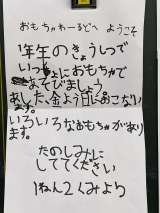 おもちゃわーるどへ ようこそ
1年年のきょうしつで
いっしょにおもちゃで
あそびましょう。
あした、金よう日におこない
ます。
いろいろなおもちゃがあり
ます。
たのしみに
しててください
1ねん2くみより